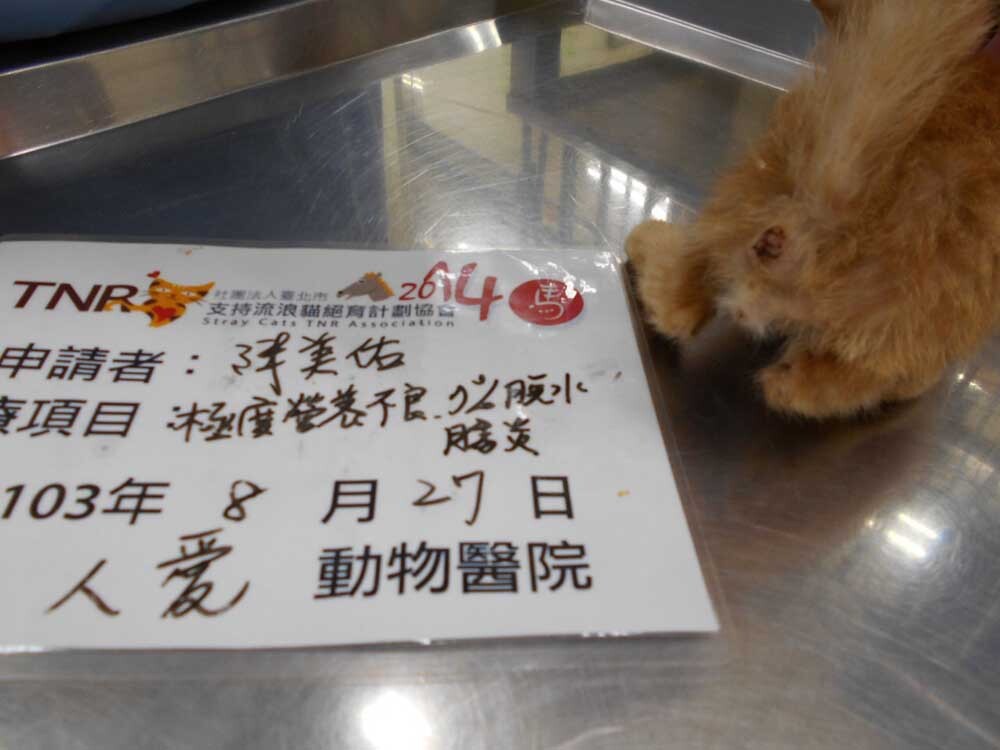 TNR 社團法人臺北市 2014 馬
支持流浪貓絕育計劃協會
Stray Cats TNR Association
申請者：陳美佑
療項目 極度營養不良、9%脫水
腸炎
103年 8 月 27 日
人愛 動物醫院